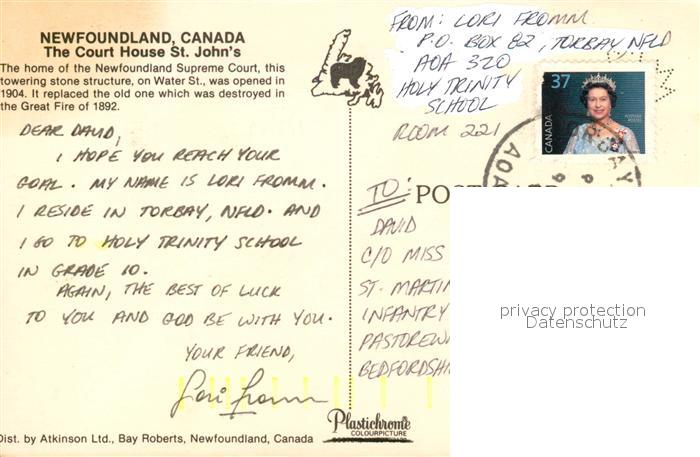 NEWFOUNDLAND, CANADA
The Court House St. John's
The home of the Newfoundland Supreme Court, this
towering stone structure, on Water St., was opened in
1904. It replaced the old one which was destroyed in
the Great Fire of 1892.
FROM: LORI FROMM
P.O. BOX 82, TORBAY, NFLD
AOA 3ZO
HOLY TRINITY
SCHOOL
ROOM 221
37
CANADA
DEAR DAVID,
I HOPE YOU REACH YOUR
GOAL. MY NAME IS LORI FROMM.
I RESIDE IN TORBAY, NFLD. AND
I GO TO HOLY TRINITY SCHOOL
IN GRADE 10.
AGAIN, THE BEST OF LUCK
TO YOU AND GOD BE WITH YOU.
YOUR FRIEND,
Lori Fromm
TO:
POSTCARD
DAVID
C/O MISS
ST. MARTIN
INFANTRY
PASTOREW
BEDFORDSHI
privacy protection
Datenschutz
Plastichrome
COLOURPICTURE
Dist. by Atkinson Ltd., Bay Roberts, Newfoundland, Canada